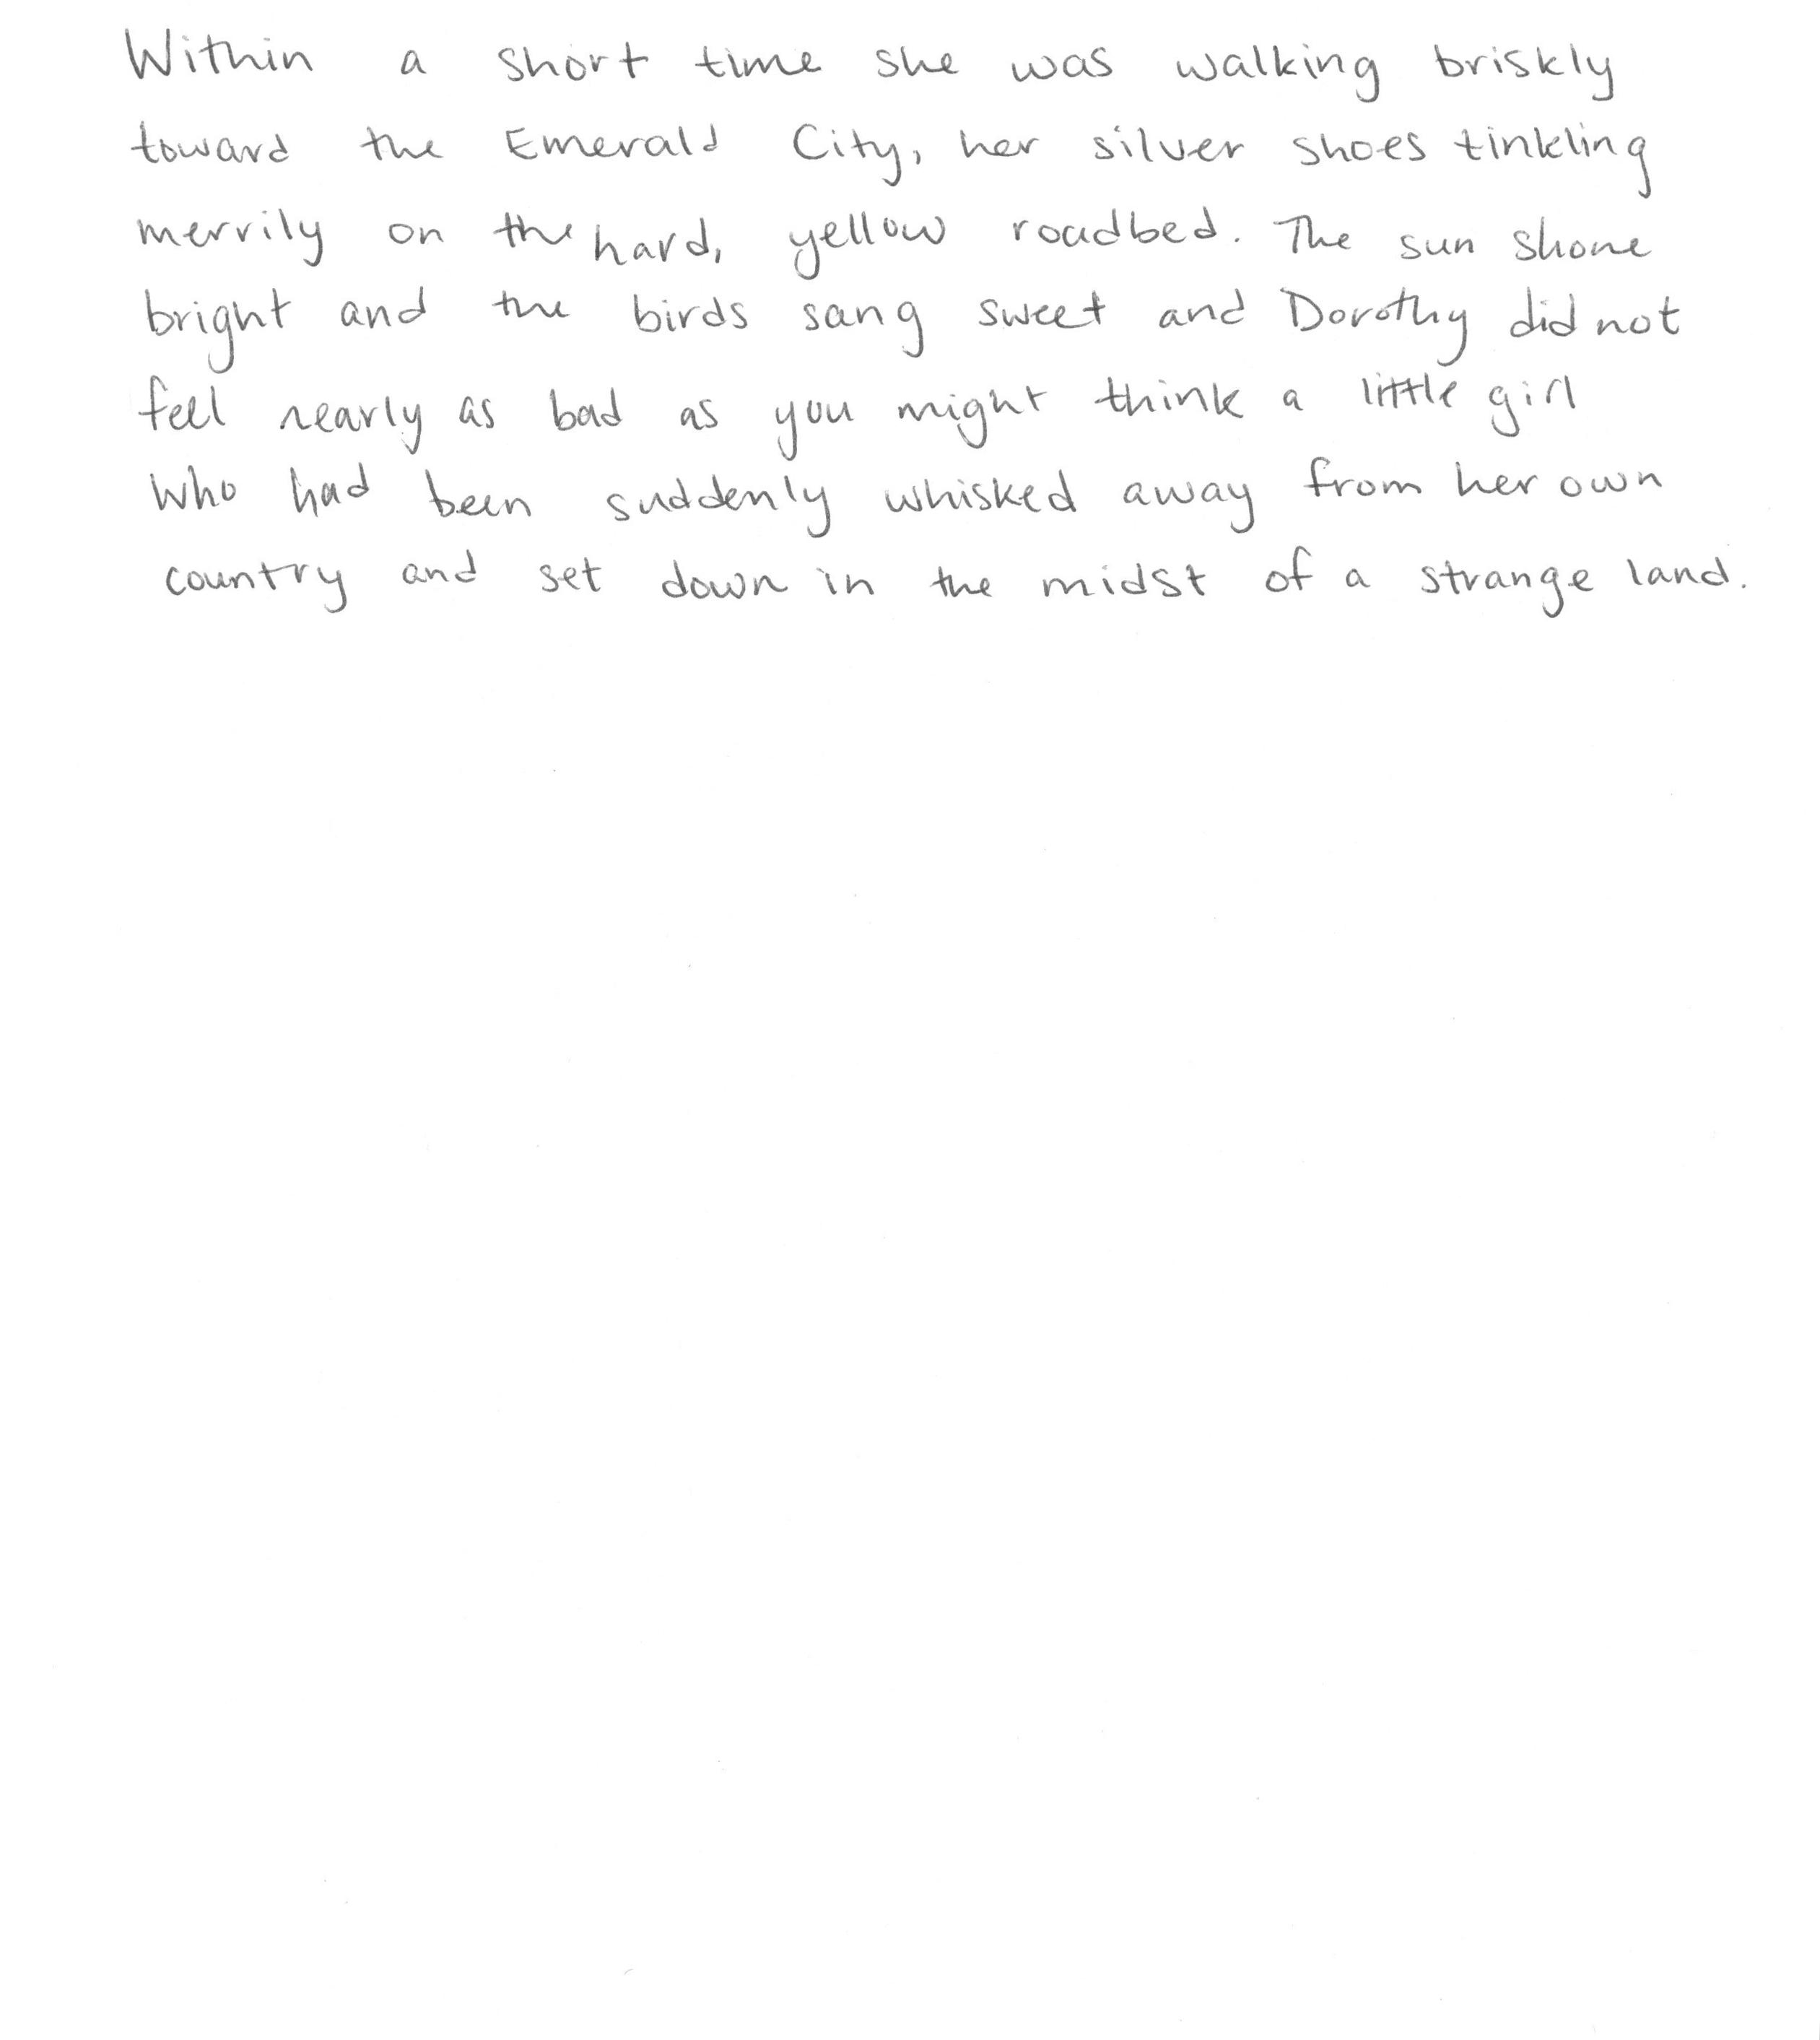 Within a short time she was walking briskly
toward the Emerald City, her silver shoes tinkling
merrily on the hard, yellow roadbed. The sun shone
bright and the birds sang sweet and Dorothy did not
feel nearly as bad as you might think a little girl
who had been suddenly whisked away from her own
country and set down in the midst of a strange land.